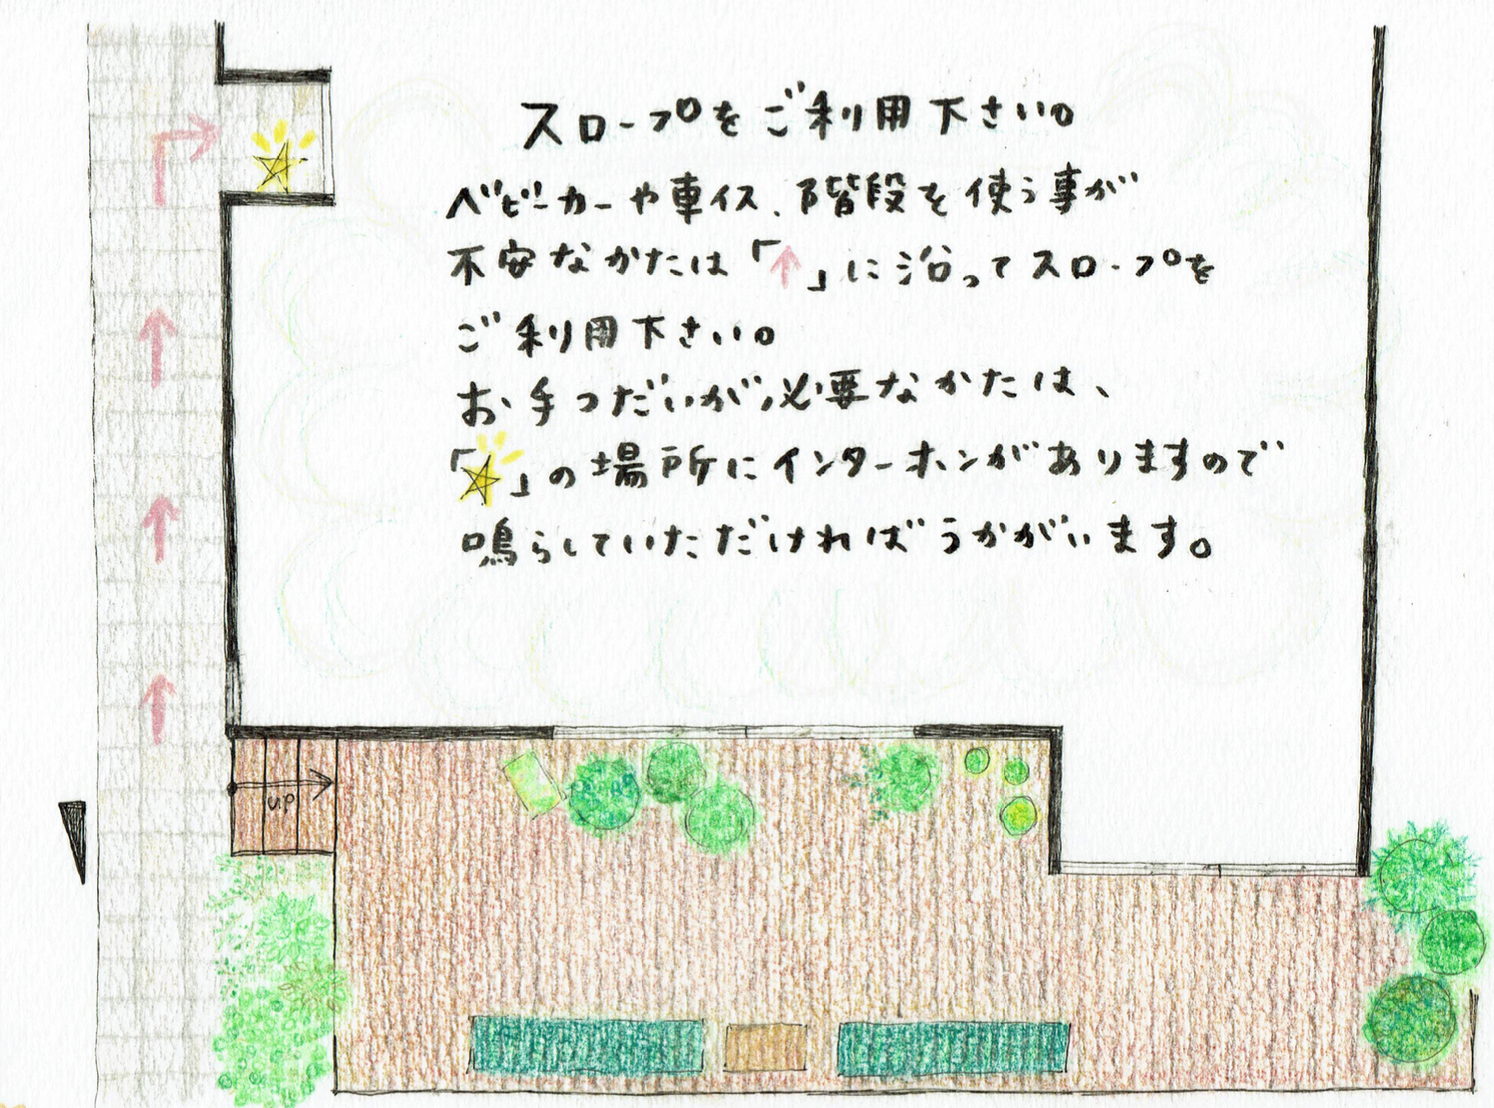 スロープをご利用下さい。
ベビーカーや車イス、階段を使う事が
不安なかたは「↑」に沿ってスロープを
ご利用下さい。
お手つだいが必要なかたは、
「☆」の場所にインターホンがありますので
鳴らしていただければうかがいます。
UP